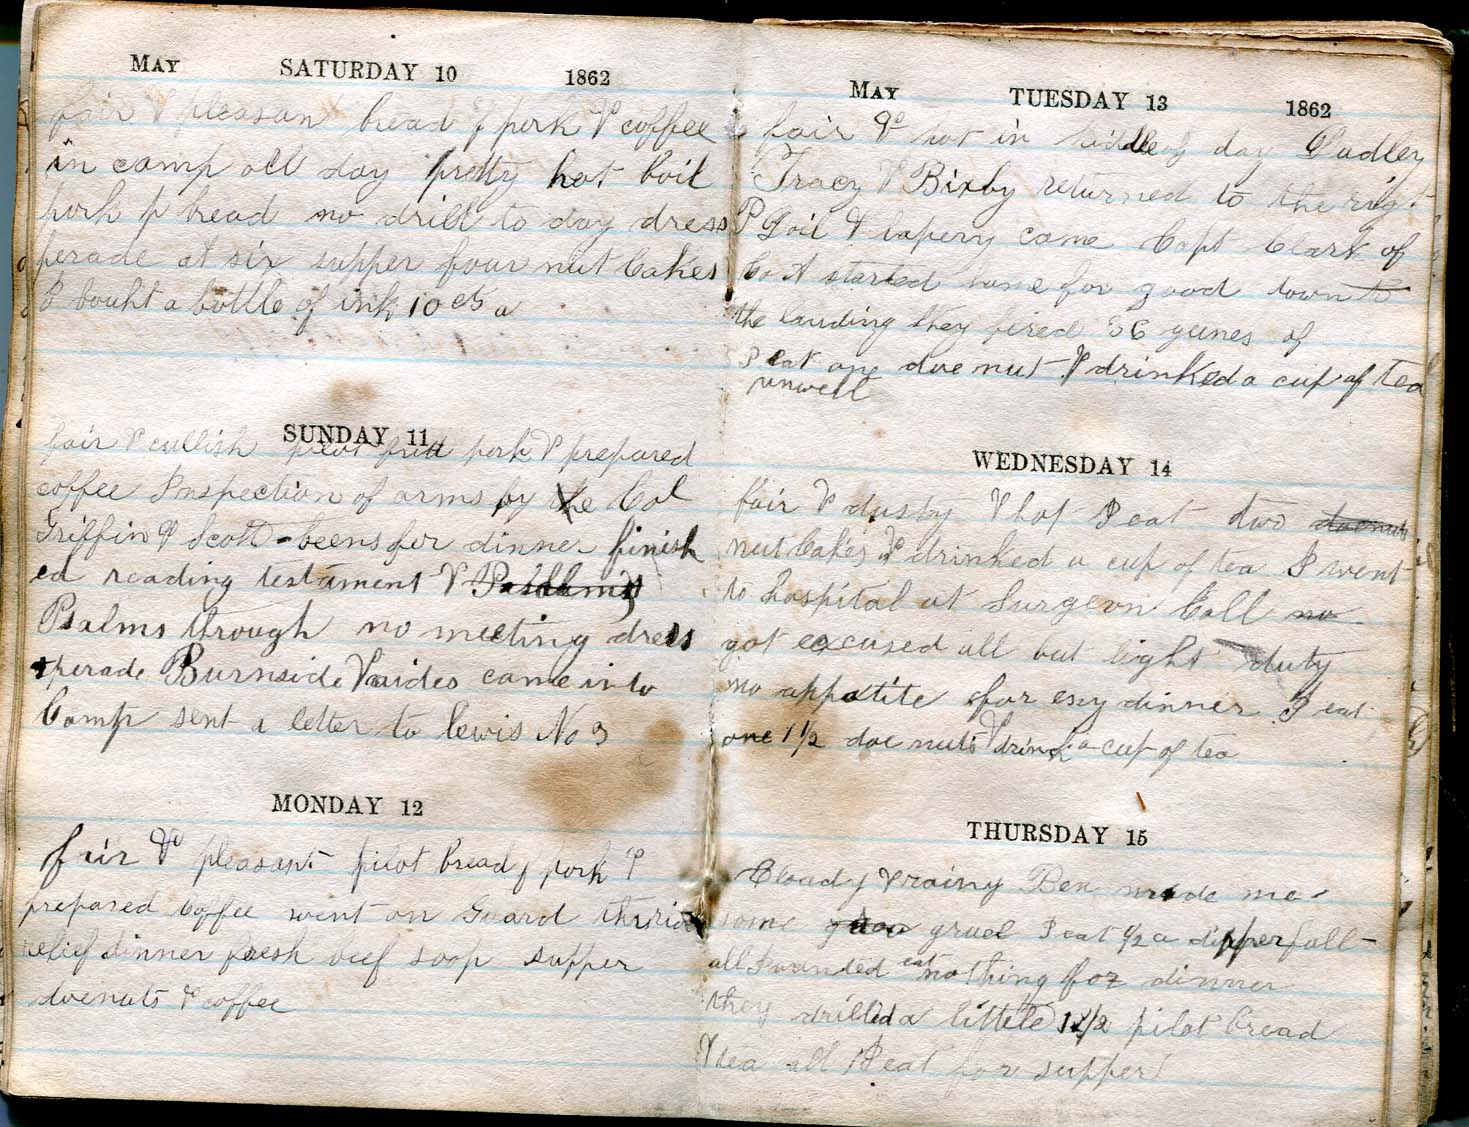 MAY SATURDAY 10 1862
fair & pleasant bread & pork & coffee
in camp all day pretty hot boil
pork & bread no drill to day dress
perade at six supper four nut Cakes
I bouht a bottle of ink 10 cts a
SUNDAY 11
fair & cullish pilot fried pork & prepared
coffee Inspection of arms by the Col
Griffin & Scott beens for dinner finish
ed reading testament &
Psalms through no meeting dress
perade Burnside & aides came in to
Camp sent a letter to lewis No 3
MONDAY 12
fair & pleasant pilot bread & pork &
prepared Coffee went on Guard third
relief dinner fresh beef soop supper
doenuts & coffee
MAY TUESDAY 13 1862
fair & hot in middle of day Dudley
Tracy & Bixby returned to the rig.
& came Capt Clark of
Co A started home for good down to
the landing they fired 36 gunes of
I eat one doe nut & drinked a cup of tea
unwell
WEDNESDAY 14
fair & dusty & hot I eat two doenuts
nut Cakes & drinked a cup of tea I went
to hospital at Surgeon Call no
got excused all but light duty
no appatite for eny dinner I eat
one 1 1/2 doe nuts & drink a cup of tea
THURSDAY 15
Cloudy & rainy Ben made me
some gruel I eat 1/2 a dipper full
all I wanted eat nothing for dinner
they drilled a little 1 1/2 pilot bread
& tea all I eat for supper